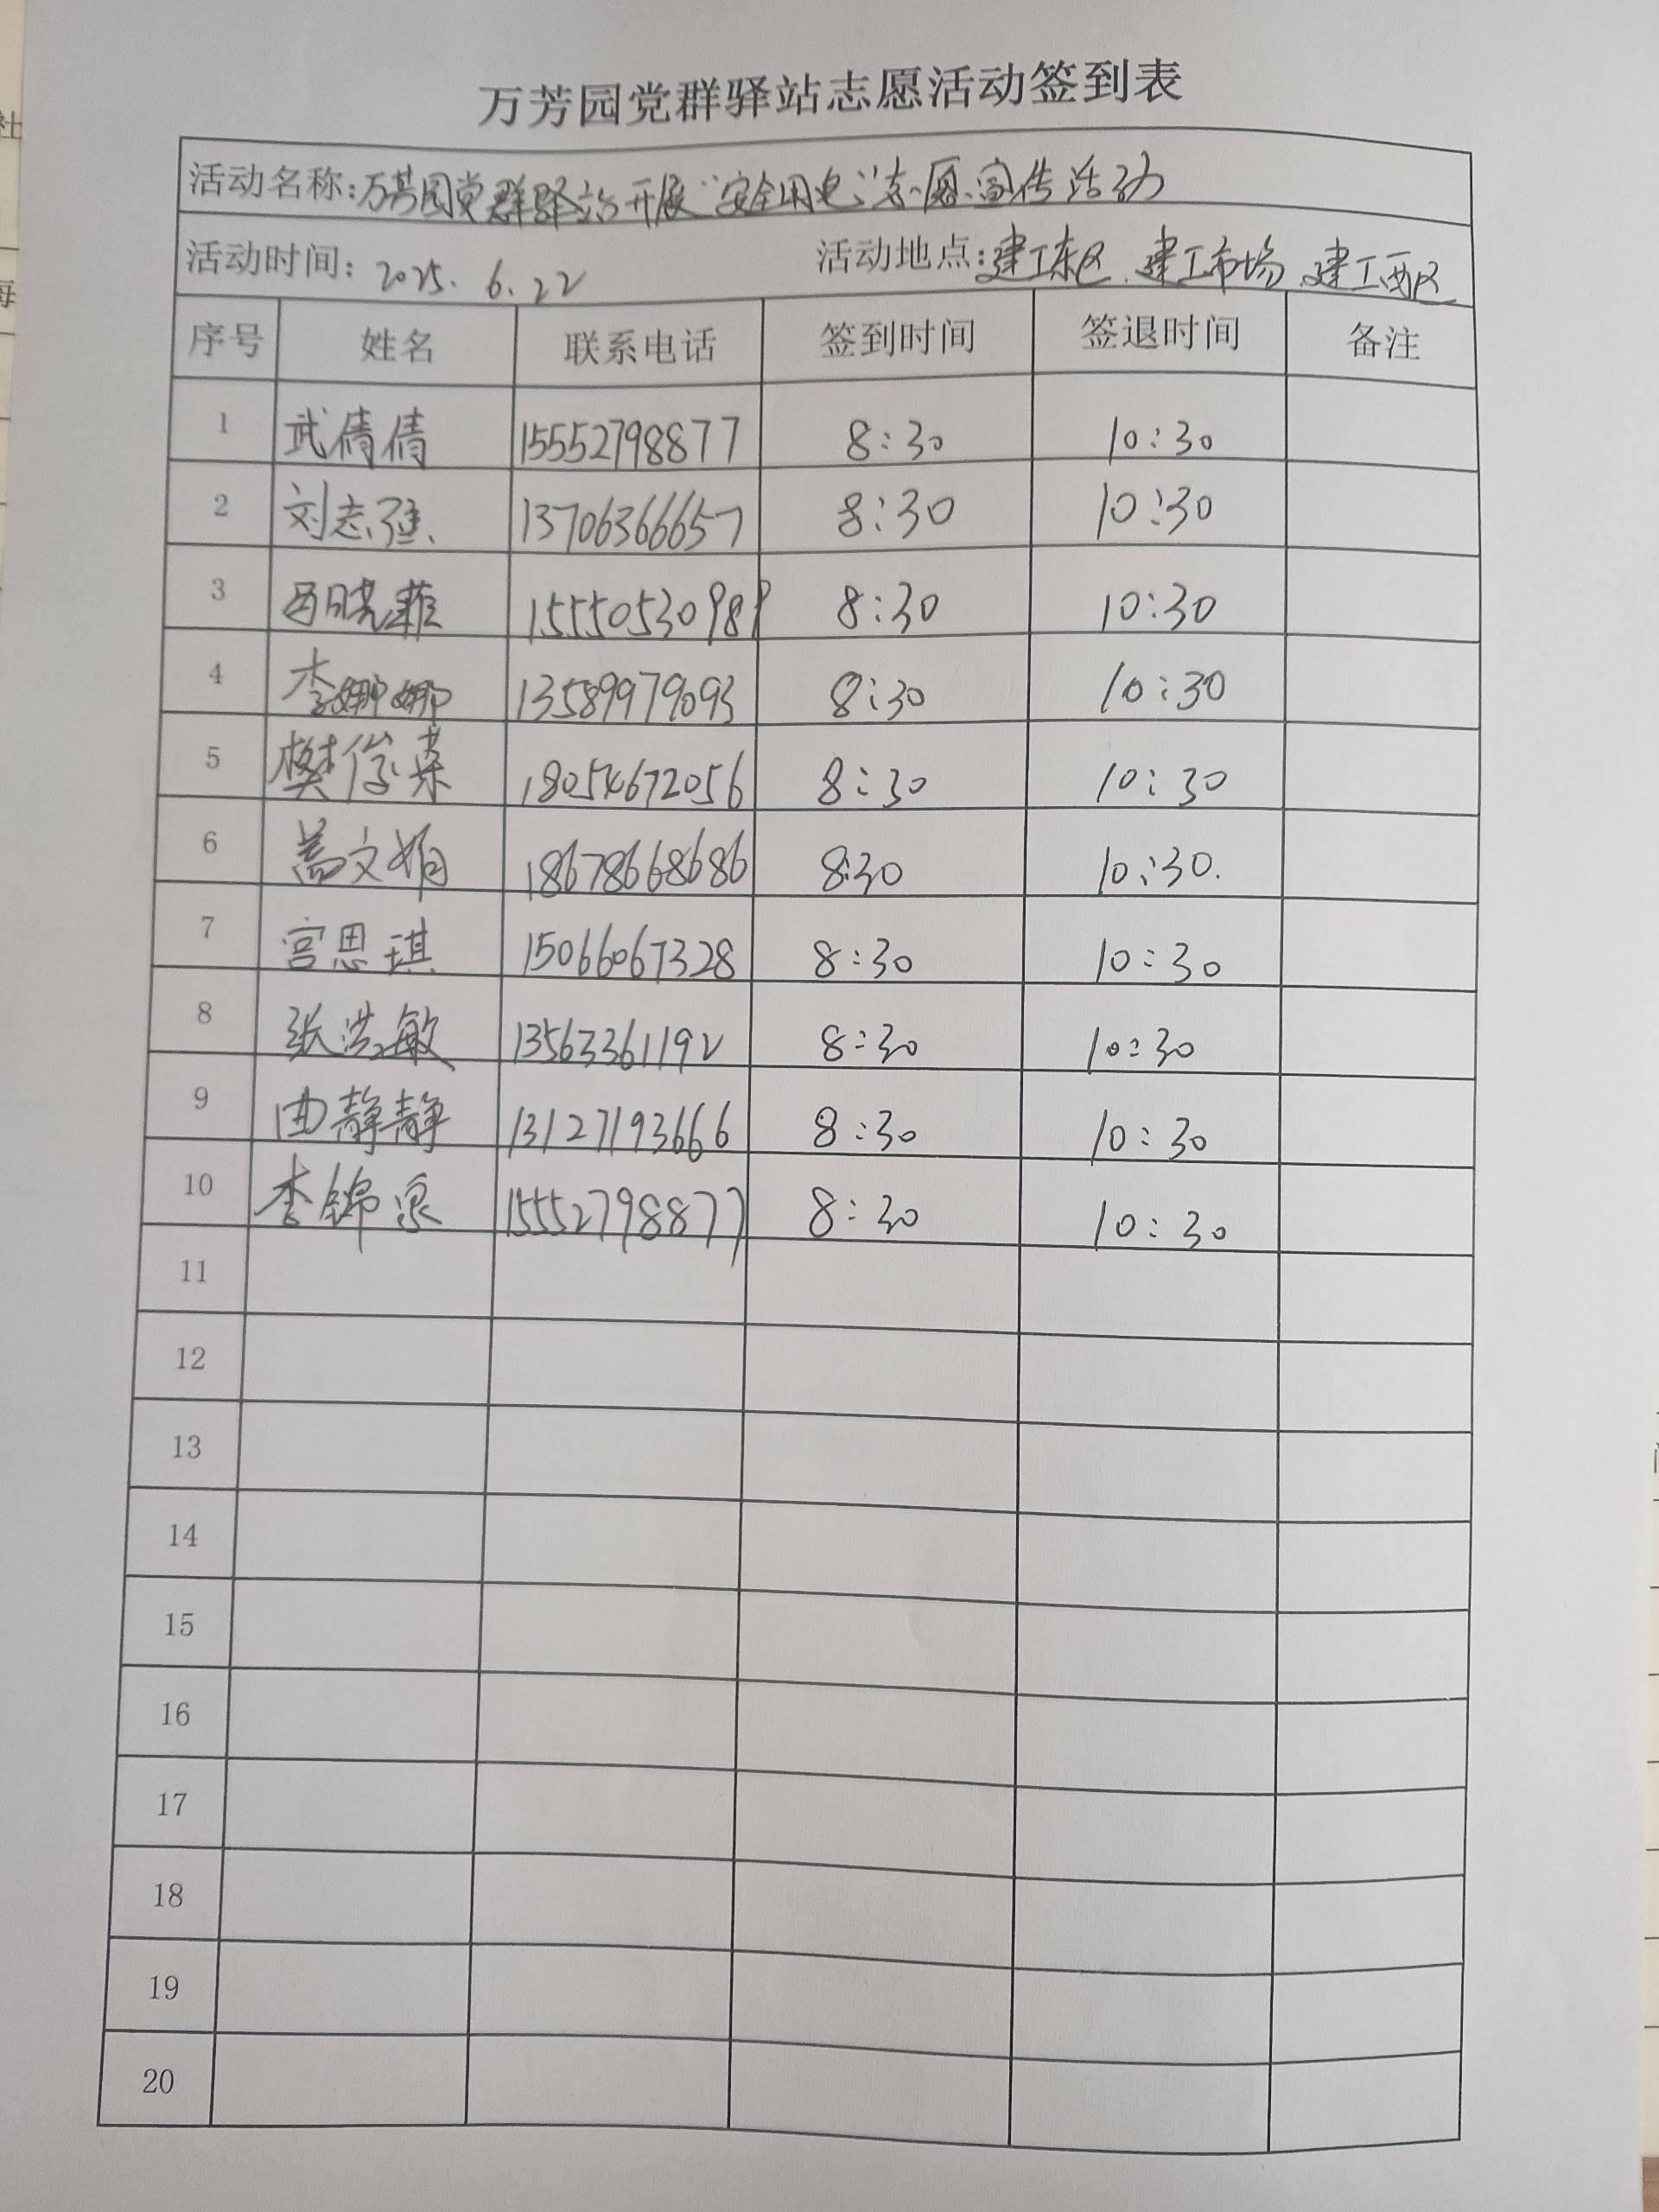 万芳园党群驿站志愿活动签到表
活动名称：万芳园党群驿站开展"安全用电"志愿宣传活动
活动时间：2025.6.22 活动地点：建工东区、建工市场、建工西区
序号 姓名 联系电话 签到时间 签退时间 备注
1 武倩倩 15552798877 8:30 10:30
2 刘志强 13706366657 8:30 10:30
3 吕晓菲 15550530989 8:30 10:30
4 李娜娜 13589979093 8:30 10:30
5 樊俊荣 18054672056 8:30 10:30
6 蒿文娟 18678668686 8:30 10:30.
7 宫思琪 15066067328 8:30 10:30
8 张洪敏 13563361192 8:30 10:30
9 曲静静 13127193666 8:30 10:30
10 李锦源 15552798877 8:30 10:30
11
12
13
14
15
16
17
18
19
20
社